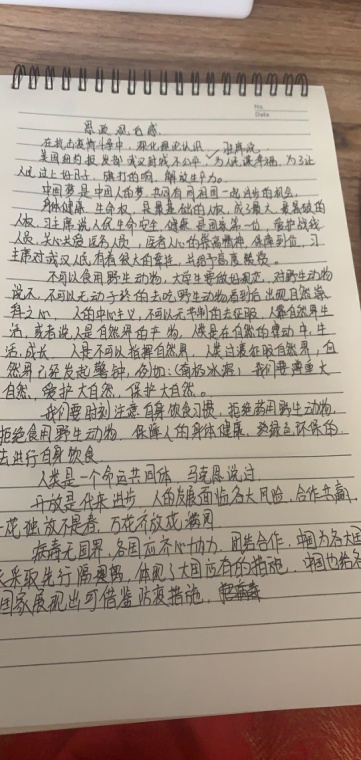 No.
Date
思政观后感
在抗击疫情斗争中,视化理论认识,
美国纽约报发部 武汉封城不公平,为人民谋幸福,为了让
人民过上好日子,强打的吗,解放生产力。
中国梦是中国人的梦,共同有可祖国一起进步的机会。
身体健康,生命权,是最基础的人权,成了最大,最基础的
人权,习主席说人民生命安全健康是国家第一位,爱护战线
人员,关心关爱医务人员,医务人心的崇高精神,保障到位,习
主席对武汉人民有着很大的牵挂,并给予高度赞赏。
不可以食用野生动物,大学生要做好规范,对野生动物
说不,不可以无动于衷的去吃,野生动物看到后出现自然崇
拜之心,人的中心主义,不可以无节制的去征服,人靠自然界生
活,或者说人是自然界的产物,人类是在自然的劳动中,生
活,成长,人是不可以指挥自然界,人类过渡征服自然界,自
然界已经发起警钟,例如:(南极冰溶)我们要尊重大
自然,爱护大自然,保护大自然。
我们要时刻注意自身饮食习惯,拒绝药用野生动物,
拒绝食用野生动物,保障人的身体健康,绿色环保的
去进行自身饮食
人类是一个命运共同体,马克思说过
开放是代来进步,人的发展面临各大风险,合作共赢,
花独放不是春,万花齐放花满园
疾病无国界,各国应齐心协力,团结合作,中国为各大国
采取先行隔离,体现了大国应有的措施,中国也给各
国家展现出可借鉴防疫措施,